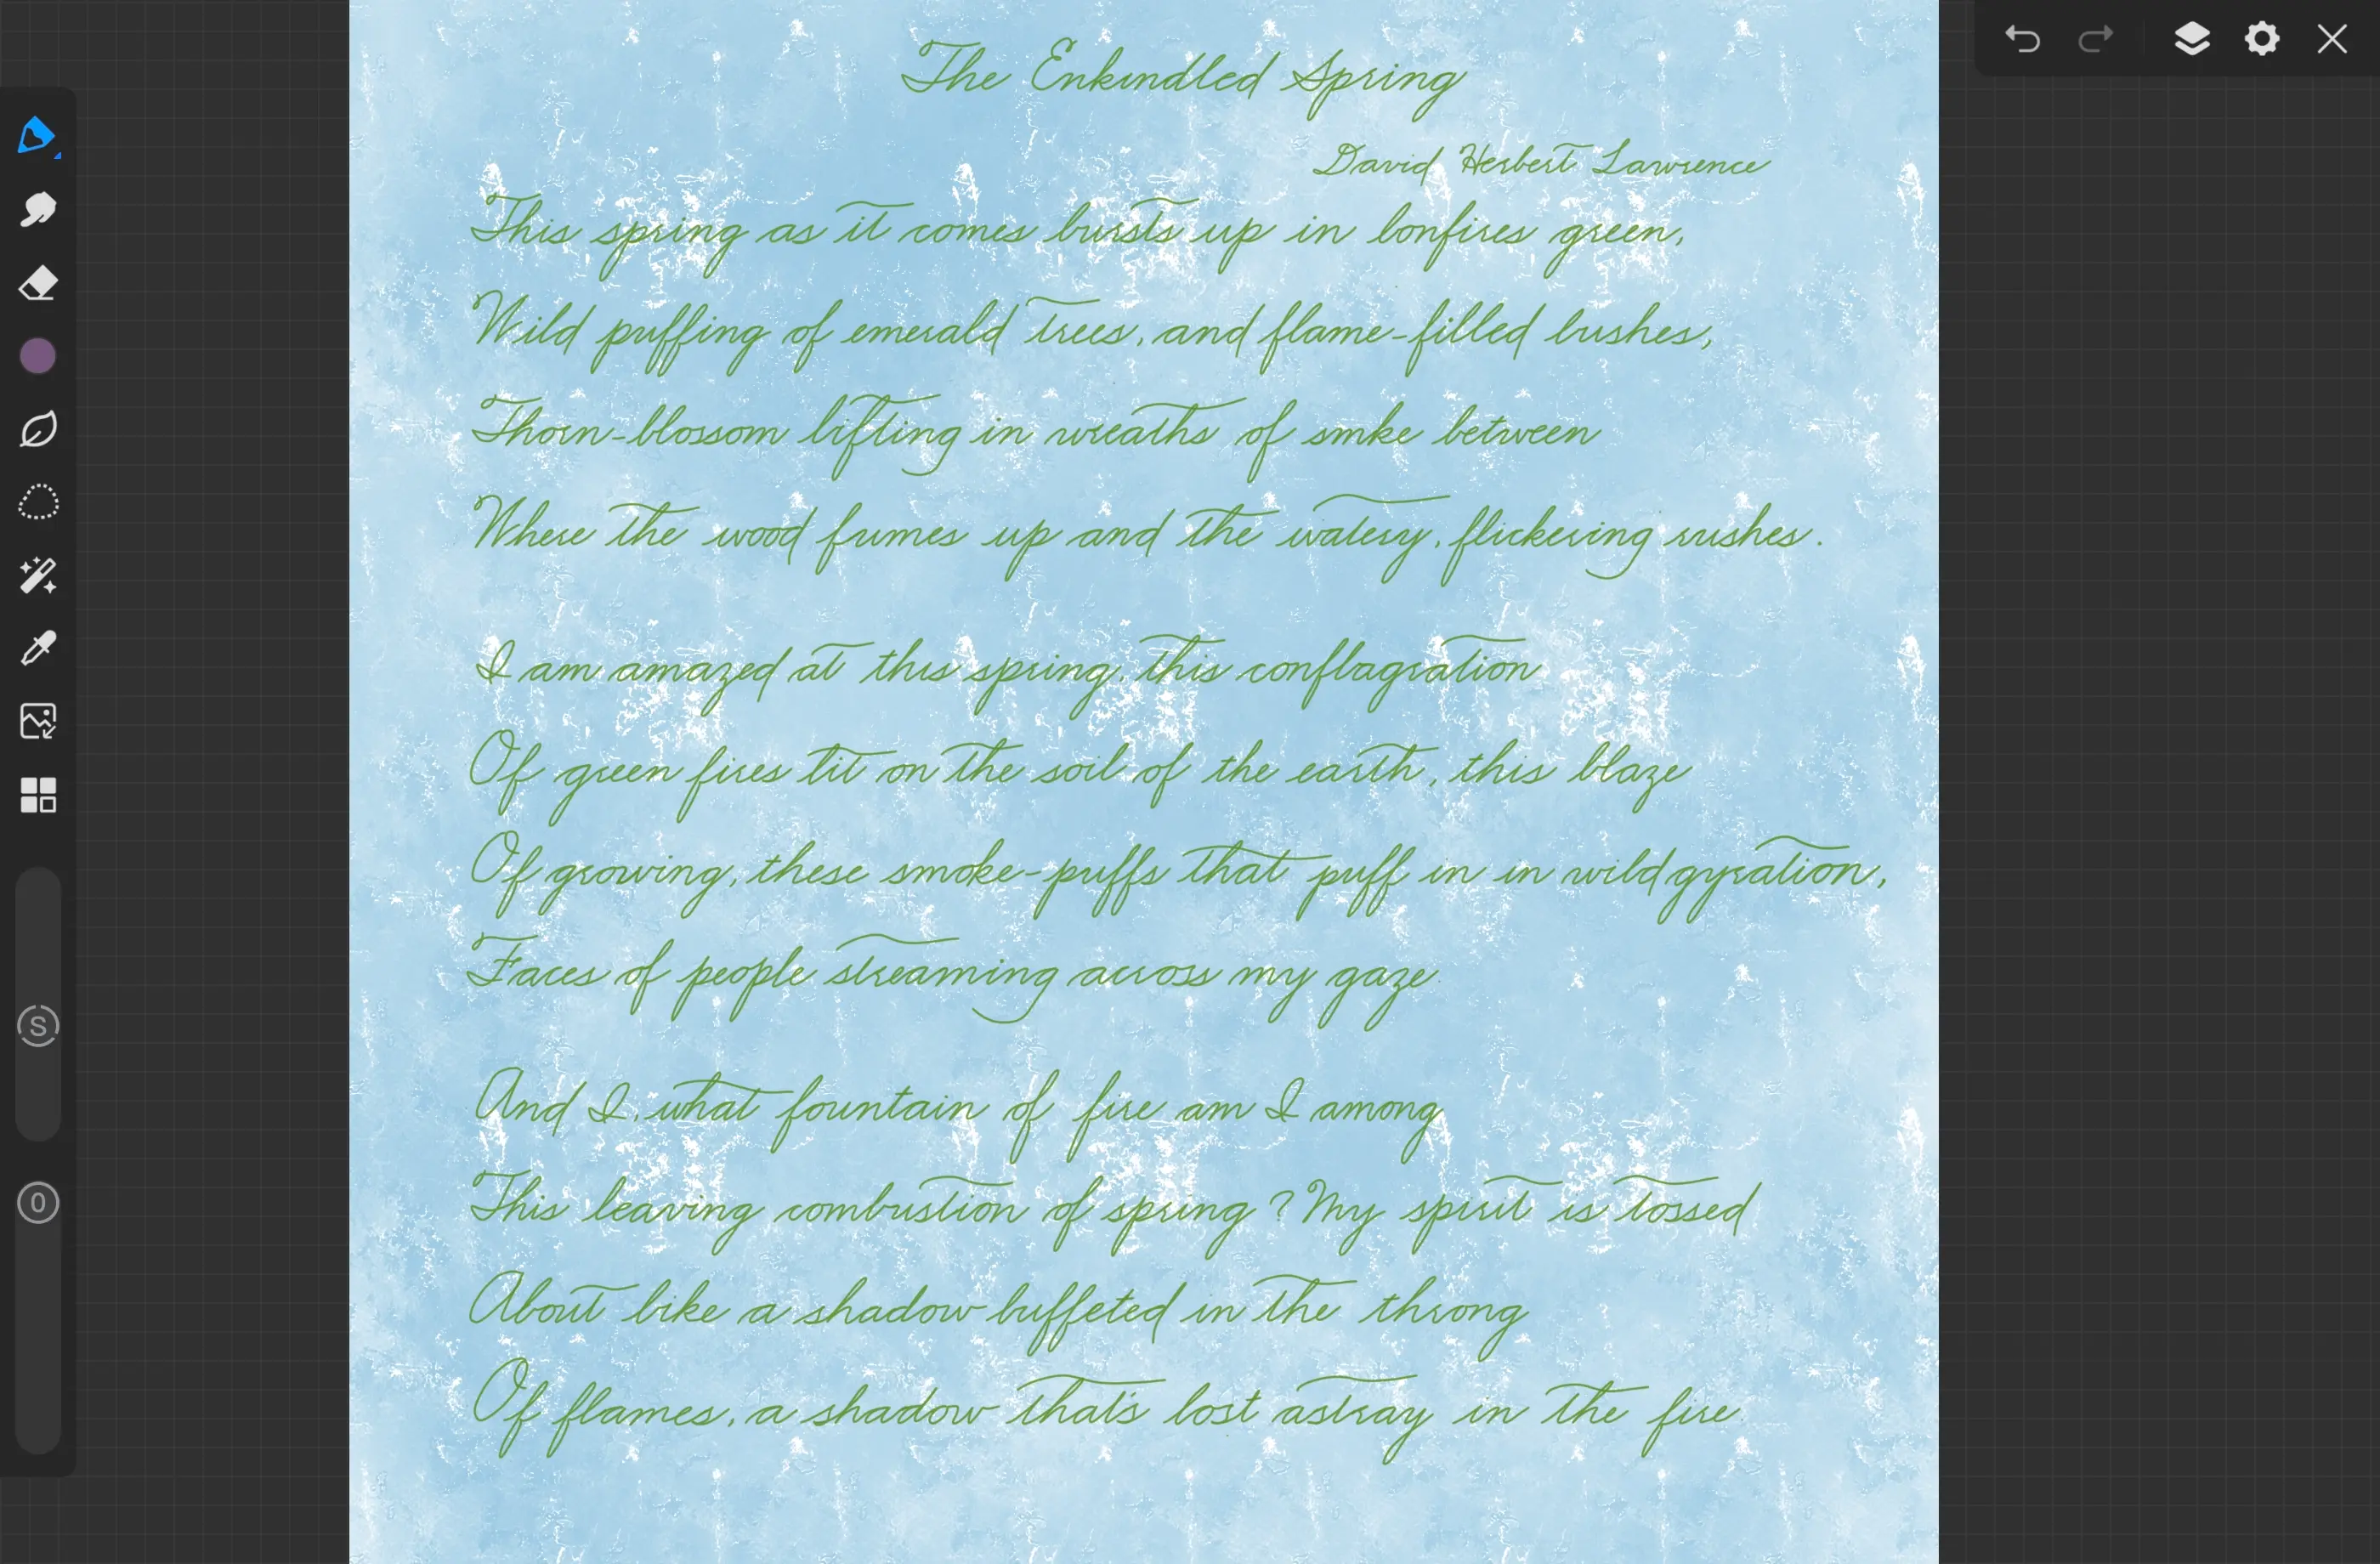 The Enkindled Spring
David Herbert Lawrence
This spring as it comes bursts up in bonfires green,
Wild puffing of emerald trees, and flame-filled bushes,
Thorn-blossom lifting in wreaths of smke between
Where the wood fumes up and the watery, flickering rushes.
I am amazed at this spring, this conflagration
Of green fires lit on the soil of the earth, this blaze
Of growing, these smoke-puffs that puff in in wild gyration,
Faces of people streaming across my gaze
And I, what fountain of fire am I among
This leaving combustion of spring? My spirit is tossed
About like a shadow buffeted in the throng
Of flames, a shadow that's lost astray in the fire
S
O